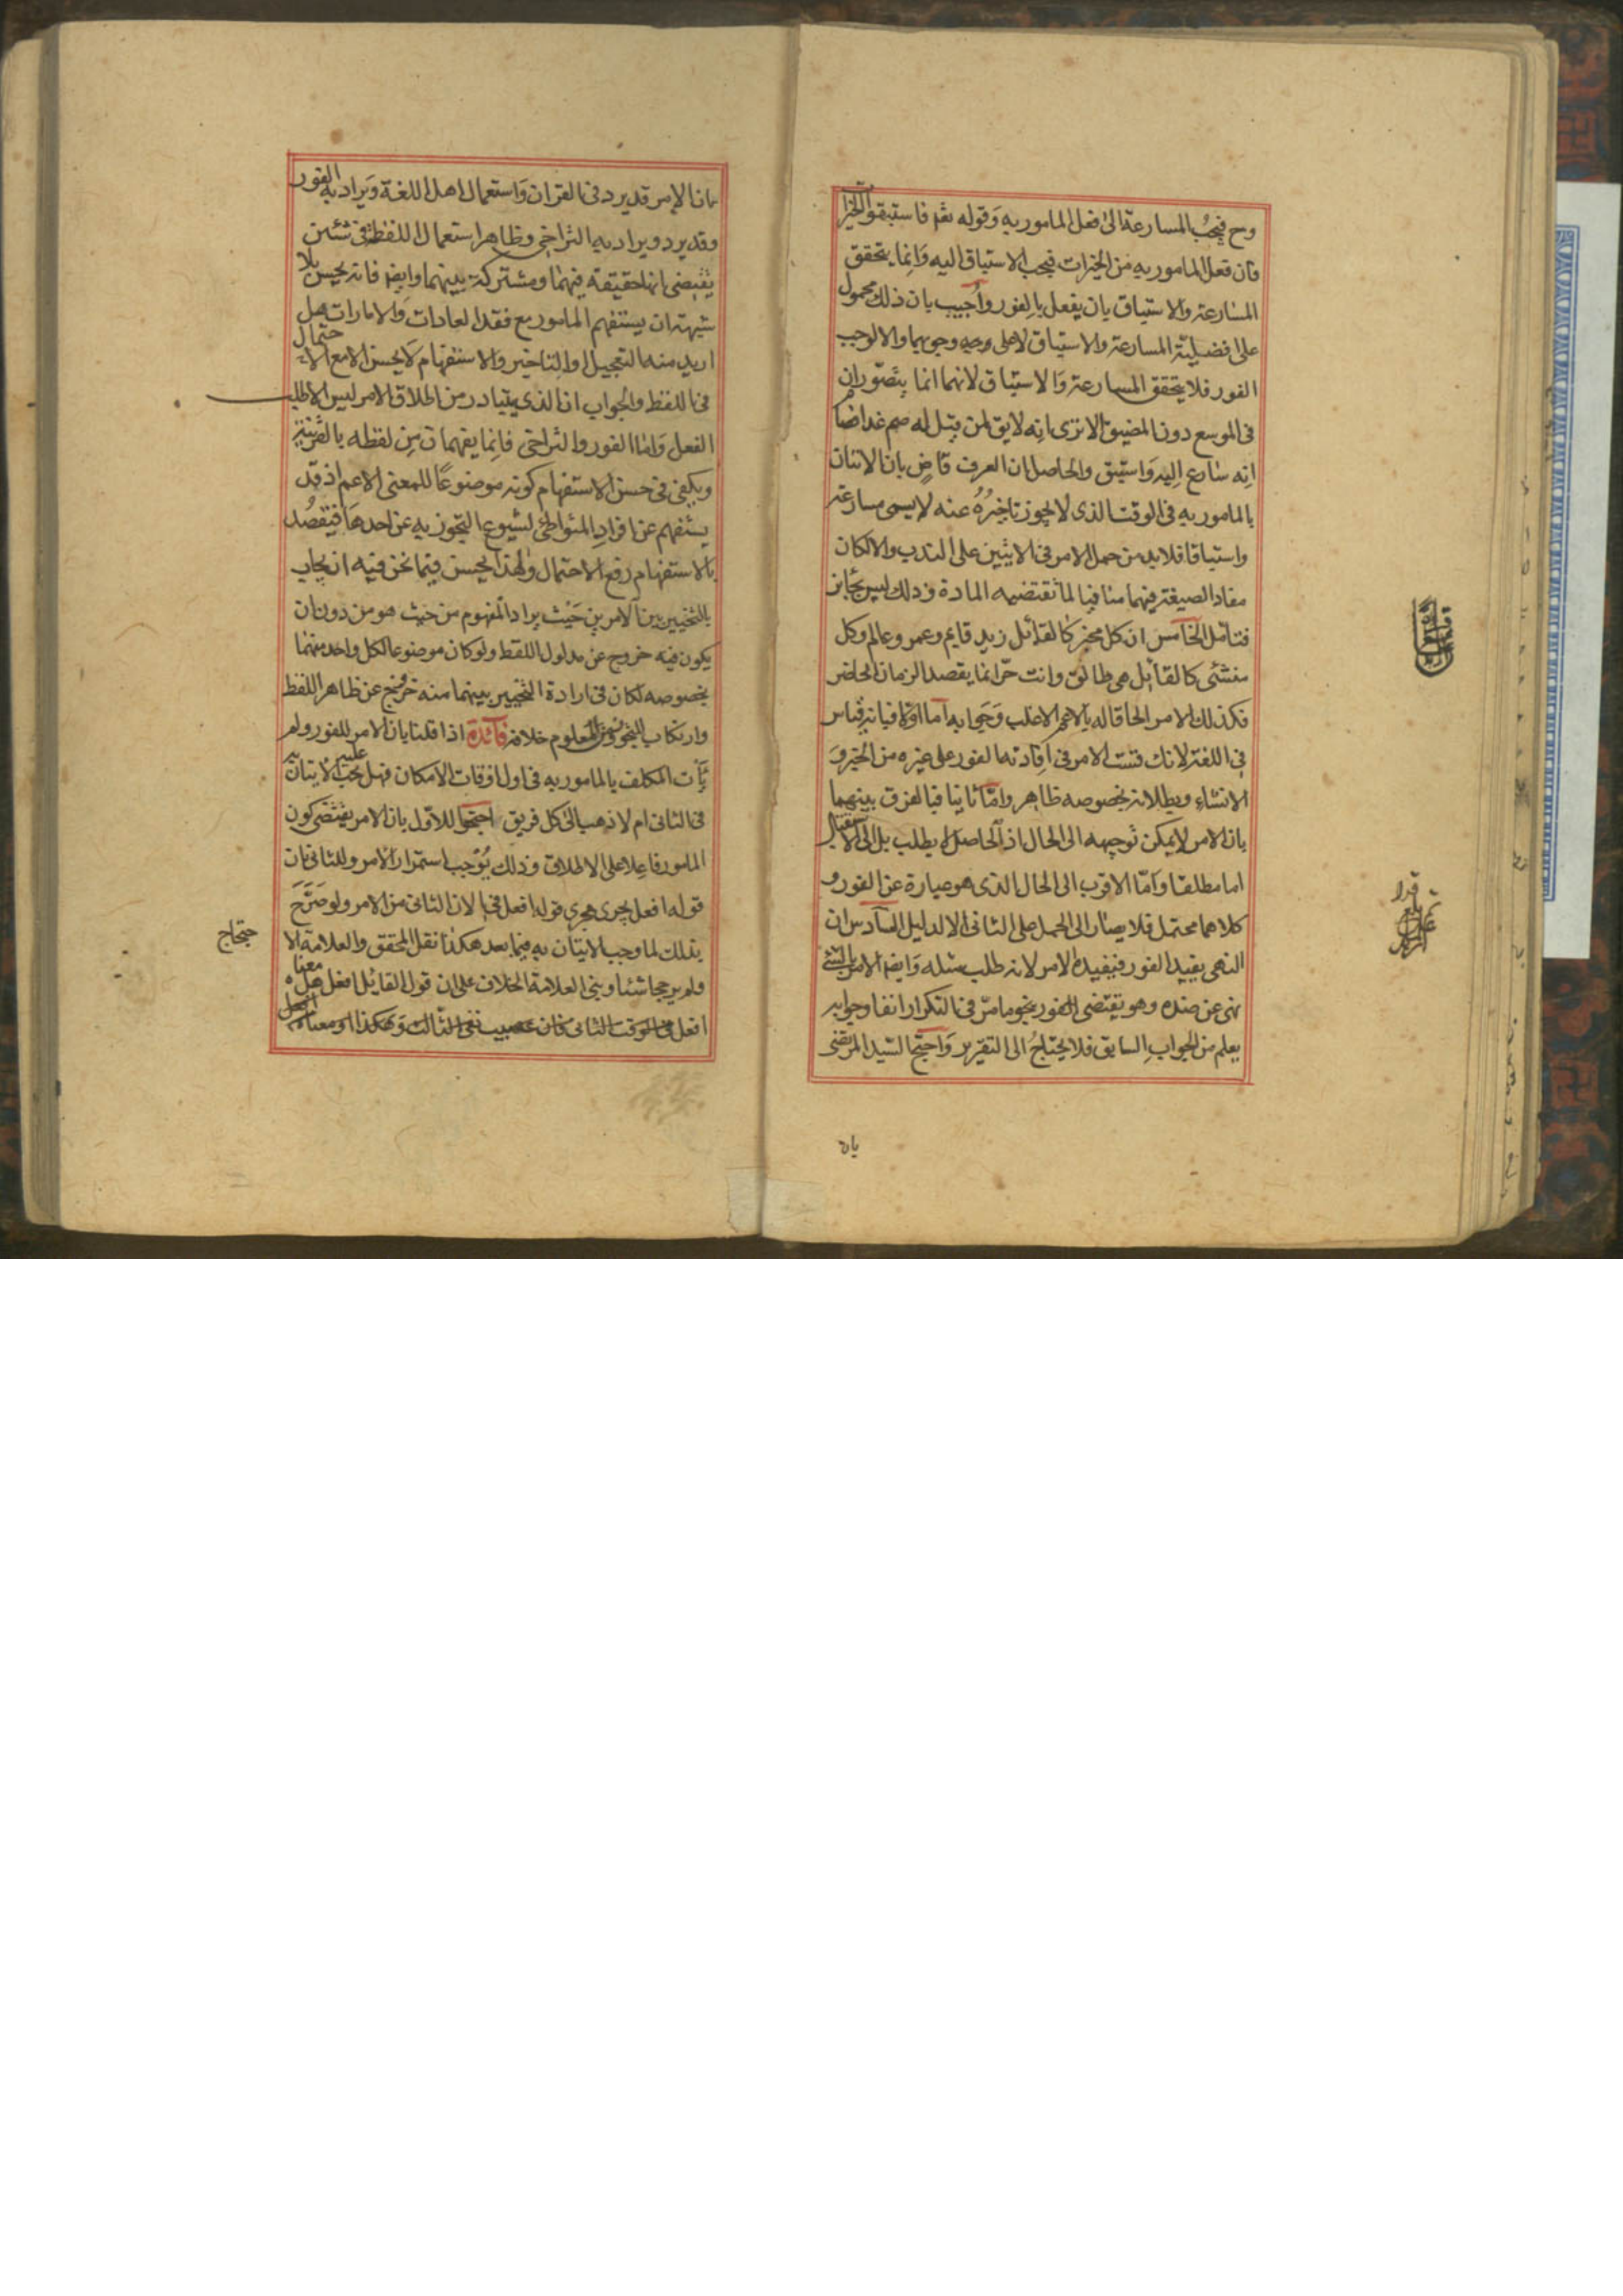 وح فيجب المسارعة الى فعل المامور به وقوله تعم فاستبقوا الخيرات
فان فعل المامور به من الخيرات فيجب الاستباق اليه وانما يتحقق
المسارعة والاستباق بان يفعل بالفور واجيب بان ذلك محمول
على افضلية المسارعة والاستباق لا على وجوبهما والا لوجب
الفور فلا يتحقق المسارعة والاستباق لانهما انما يتصوران
فى الموسع دون المضيق الا ترى انه لا يق لمن قيل له صم غدا فصام
انه سارع اليه واستبق والحاصل ان العرف قاض بان الاتيان
بالمامور به فى الوقت الذى لا يجوز تاخيره عنه لا يسمى مسارعة
واستباقا فلا بد من حمل الامر فى الايتين على الندب والا لكان
مفاد الصيغة فيهما منافيا لما تقتضيه المادة وذلك ليس بجايز
فتامل الخامس ان كل مخبر كالقائل زيد قايم وعمرو عالم وكل
منشئ كالقائل هى طالق وانت حر انما يقصد الزمان الحاضر
فكذلك الامر الحاقا له بالاعم الاغلب وجوابه اما اولا فبانه قياس
فى اللغة لانك قست الامر فى افادته الفور على غيره من الخبر و
الانشاء وبطلانه بخصوصه ظاهر واما ثانيا فبالفرق بينهما
بان الامر لا يمكن توجيهه الى الحال اذ الحاصل لا يطلب بل الى الاستقبال
اما مطلقا واما الاقرب الى الحال الذى هو عبارة عن الفور و
كلاهما محتمل فلا يصار الى الحمل على الثانى الا لدليل السادس ان
النهى يفيد الفور فيفيده الامر لانه طلب مثله وايضا الامر بالشئ
نهى عن ضده وهو يقتضى الفور بنحو ما مر فى التكرار انفا وجوابه
يعلم من الجواب السابق فلا يحتاج الى التقرير واحتج السيد المرتضى
بان
بان الامر قد يرد فى القران واستعمال اهل اللغة ويراد به الفور
وقد يرد ويراد به التراخى وظاهر استعمال اللفظ فى شئين
يقتضى انها حقيقة فيهما ومشتركة بينهما وايضا فانه يحسن بلا
شبهة ان يستفهم المامور مع فقد العادات والامارات هل
اريد منه التعجيل او التاخير والاستفهام لا يحسن الا مع الاحتمال
فى اللفظ والجواب ان الذى يتبادر من اطلاق الامر ليس الا طلب
الفعل واما الفور والتراخى فانما يفهمان من لفظه بالقرينة
ويكفى فى حسن الاستفهام كونه موضوعا للمعنى الاعم اذ قد
يستفهم عن افراد المتواطى لشيوع التجوز به عن احدها فيقصد
بالاستفهام رفع الاحتمال ولهذا يحسن فيما نحن فيه ان يجاب
بالتخيير بين الامرين حيث يراد المفهوم من حيث هو من دون ان
يكون فيه خروج عن مدلول اللفظ ولو كان موضوعا لكل واحد منهما
بخصوصه لكان فى ارادة التخيير بينهما منه خروج عن ظاهر اللفظ
وارتكاب للتجوز ومن المعلوم خلافه فائدة اذا قلنا بان الامر للفور ولم
يأت المكلف بالمامور به فى اول اوقات الامكان فهل يجب عليه الاتيان به
فى الثانى ام لا ذهب الى كل فريق احتجوا للاول بان الامر يقتضى كون
المامور فاعلا على الاطلاق وذلك يوجب استمرار الامر وللثانى بان
قوله افعل يجرى مجرى قوله افعل فى الان الثانى من الامر ولو صرح
بذلك لما وجب الاتيان به فيما بعد هكذا نقل المحقق والعلامة الاحتجاج
ولم يرجحا شئا وبنى العلامة الخلاف على ان قول القائل افعل هل معناه
افعل فى الوقت الثانى فان عصيت ففى الثالث وهكذا او معناه افعل